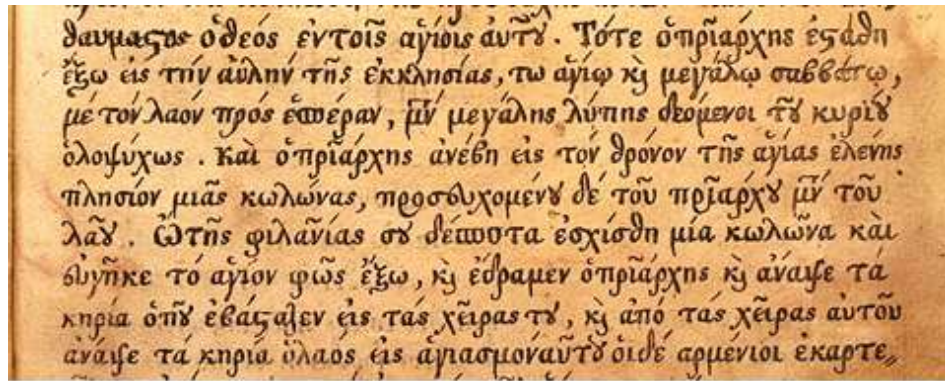 θαυμαςὸς ὁ θεός ἐν τοῖς ἁγίοις αὐτȣ͂. Τότε ὁ πρῖάρχης ἐςάθη
ἔξω εἰς τήν αὐλήν τῆς ἐκκλησίας, τω ἁγίῳ κ̀ μεγάλῳ σαββάτῳ,
μέ τόν λαον πρός ἑσπέραν, μν̄ μεγάλης λύπης δεόμενοι τȣ͂ κυρίȣ
ὁλοψύχως. Καὶ ὁ πρῖάρχης ἀνέβη εἰς τόν θρόνον τῆς ἁγίας ἑλένης
πλησίον μιᾶς κωλώνας, προσευχομένȣ δέ τοῦ πρῖάρχȣ μν̄ τοῦ
λαȣ͂. Ὢ τῆς φιλανίας σȣ δέσποτα ἐσχίσθη μία κωλῶνα καὶ
εὐγῆκε τό ἅγιον φῶς ἔξω, κ̀ ἔδραμεν ὁ πρῖάρχης κ̀ ἀναψε τά
κηρία ὁπȣ͂ ἐβάςαζεν εἰς τάς χεῖρας τȣ, κ̀ ἀπό τάς χεῖρας αὐτοῦ
ἀναψε τά κηρία ὁ λαός εἰς ἁγιασμόν αὐτȣ͂ οἱ δέ αρμένιοι ἐκαρτε„